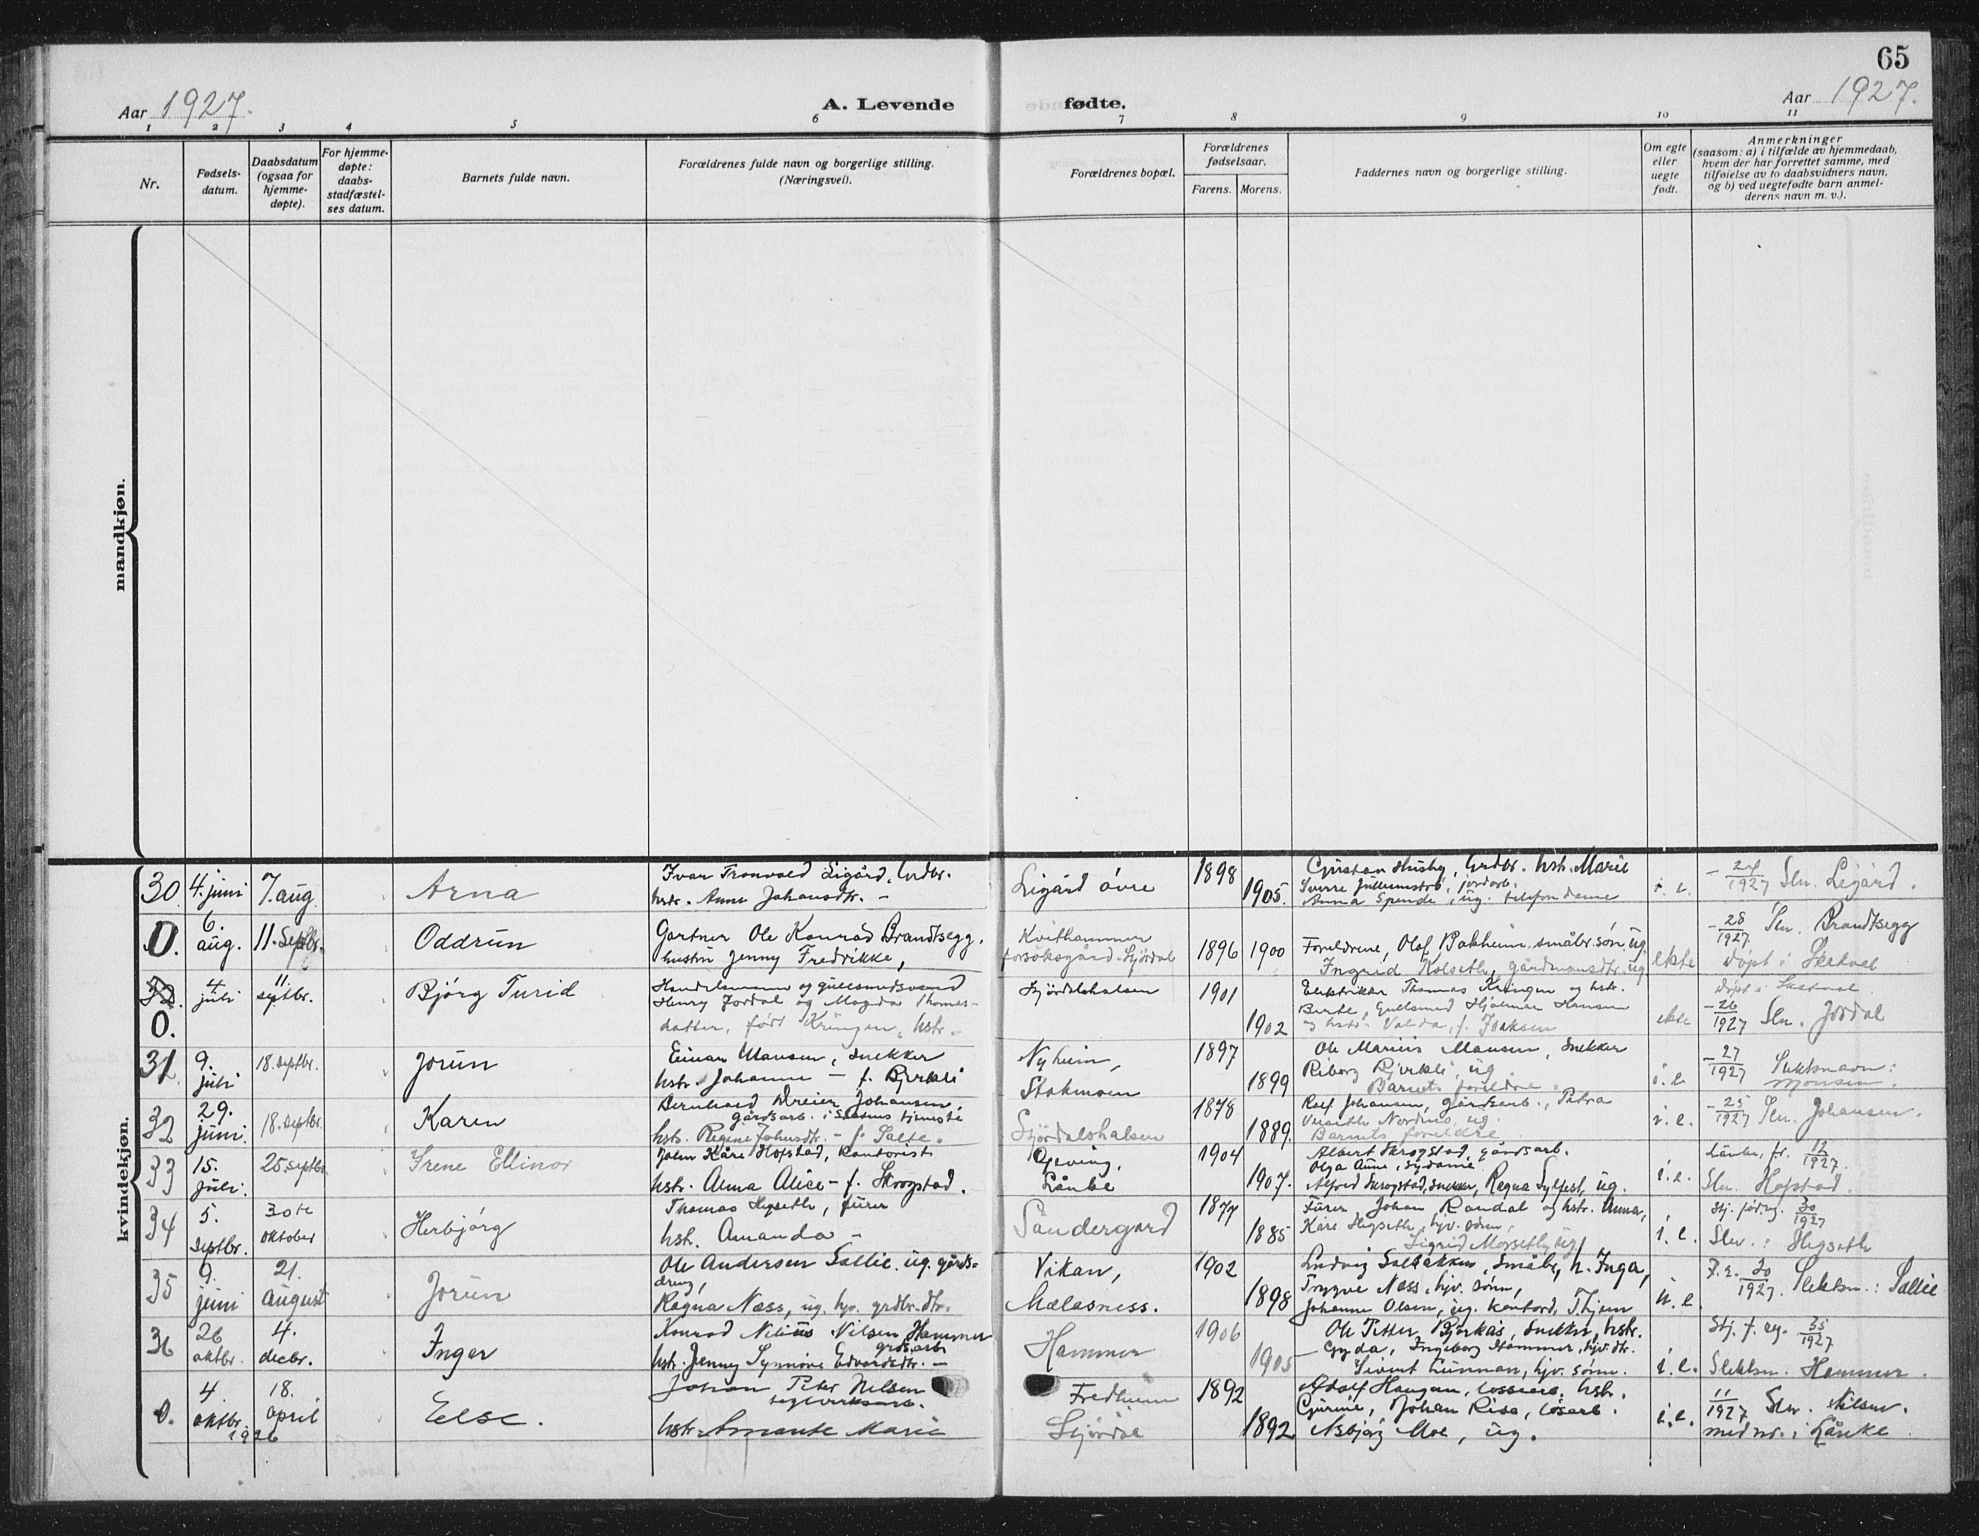 65
Aar 1927.
A. Levende fødte.
Aar 1927.
1 2 3 4 5 6 7 8 9 10 11
Nr.
Fødsels-
datum.
Daabsdatum
(ogsaa for
hjemme-
døpte).
For hjemme-
døpte:
daabs-
stadfæstel-
ses datum.
Barnets fulde navn.
Forældrenes fulde navn og borgerlige stilling.
(Næringsvei).
Forældrenes bopæl.
Forældrenes
fødselsaar.
Farens. Morens.
Faddernes navn og borgerlige stilling.
Om egte
eller
uegte
født.
Anmerkninger
(saasom: a) i tilfælde av hjemmedaab,
hvem der har forrettet samme, med
tilføielse av to daabsvidners navn,
og b) ved uegtefødte barn anmel-
derens navn m. v.).
mandkjøn.
kvindekjøn.
30. 4. juni 7. aug. Arna
Ivar Tronvold Ligård, Grdbr.
hstr. Anna Johansdtr. -
Ligård övre
1898
1905.
Husby, Grdbr. hstr. Marie
Sverre jordarb.
Anna Spende, ug. telefondame
i. e.
1927 Sln. Ligård.
0. 6. aug. 11. Septbr. Oddrun
Gartner Ole Konrad Brandtsegg,
hustru Jenny Fredrikke,
Kvithammer
forsöksgård. Stjördal
1896 1900
Foreldrene, Olaf Bakheim, småbr. søn, ug.
Ingrid Kolseth, gårdmansdtr. ug.
ekte
28/1927 Sln. Brandtsegg
döpt i Skatval
0. 4. juli 11 septbr. Bjørg Turid
Handelsmann og gullsmedsvend
Henry Jordal og Magda Thomas-
datter, født Kringen, hstr.
Stjördalshalsen
1901
1902
Elektriker Thomas Kringen og hstr.
Berte, Gullsmed Hjalmar Hansen
og hstr. Valda, f. Isaksen
ekte
döpt i Skatval
26/1927 Sln. Jordal
31. 9. juli 18. septbr. Jorun
Einar Mansen, snekker
hstr. Johanne - f. Bjerkli
Nyheim,
Stokmoen
1897
1899
Ole Marius Mansen, Snekker
Riborg Bjerkli, ug
Barnets foreldre.
i. e.
27/1927 Slektsnavn:
Monsen.
32 29. juni. 18. septbr. Karen
Bernhard Dreier Johansen,
gårdsarb. i Statens tjeneste
hstr. Regine Johnsdtr. - f. Salte.
Stjördalshalsen
1878
1889.
Rolf Johansen, gårdsarb., Petra
Nordnes, ug.
Barnets foreldre
i. e.
25/1927 Sln. Johansen.
33 15. juli. 25. septbr. Irene Ellinor
John Kåre Hofstad, Kontorist
hstr. Anna Alice - f. Skrogstad.
Gjeving,
Lånke
1904
1907.
Albert Skrogstad, gårdsarb.
Olga Aune, sydame
Alfred Skrogstad, snekker, Ragna Sylfest, ug.
i. e.
Lånke, fr. 12/1927.
Sln. Hofstad.
34 5. septbr. 30te oktober Herbjørg
Thomas Hegseth, furer
hstr. Amanda -
Sandergard
1877
1885
Furer Johan Randal og hstr. Anna,
Kåre Hegseth, hjv. sönn,
Sigrid
i. e.
Stj. 30/1927
Sln.: Hegseth
35 9. juni 21. august Jorun
Ole Andersen Sallie, ug. gårds-
dreng,
Ragna Næss, ug. hjv. grdbr. dtr.
Vikan,
Mælasness.
1902
1898
Ludvig Småbr, h. Inga,
Trygve Næss, hjv. sönn,
Johanne Olsen, ug. kontord, Thjem
u. e.
F. r. 30/1927. Slektsn.: Sallie
36 26 oktbr. 4. decbr. Inger
Konrad Nilius Nilsen Hammer
grdsarb
hstr. Jenny Synnöve Edvardsdtr. -
Hammer
1906
1905
Ole Petter Bjerkås, Snekker, hstr.
Gyda, Ingeborg Hammer, hjv. dtr.
Sivert Lunnan, hjv. sönn.
i. e.
Stj. f. eg. 35/1927
Slektsn. Hammer.
0. 4. oktbr. 1926 18. april Else.
Johan Peter Nilsen
teglverksarb.
hstr. Amante Marie
Fredheim
Stjördal
1892
1892
Adolf Haugan, lossearb. hstr.
Gjurine, Johan Risa, lösarb.
Asbjörg Moe, ug.
i. e.
11/1927 Sln. Nilsen.
med nr. i Lånke